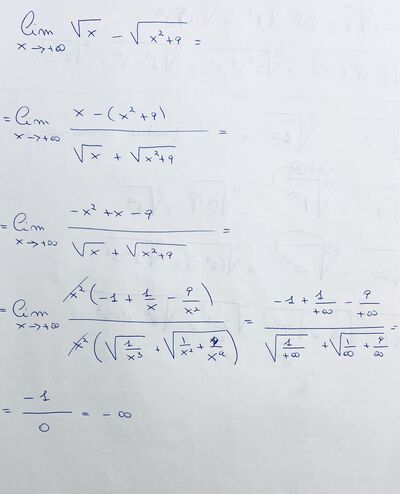 lim x→+∞ √x − √(x²+9) =
= lim x→+∞ (x − (x²+9)) / (√x + √(x²+9)) =
= lim x→+∞ (−x² + x − 9) / (√x + √(x²+9)) =
= lim x→+∞ x²(−1 + 1/x − 9/x²) / x²(√(1/x³) + √(1/x² + 9/x⁴)) = (−1 + 1/+∞ − 9/+∞) / (√(1/+∞) + √(1/∞ + 9/∞)) =
= −1/0 = −∞